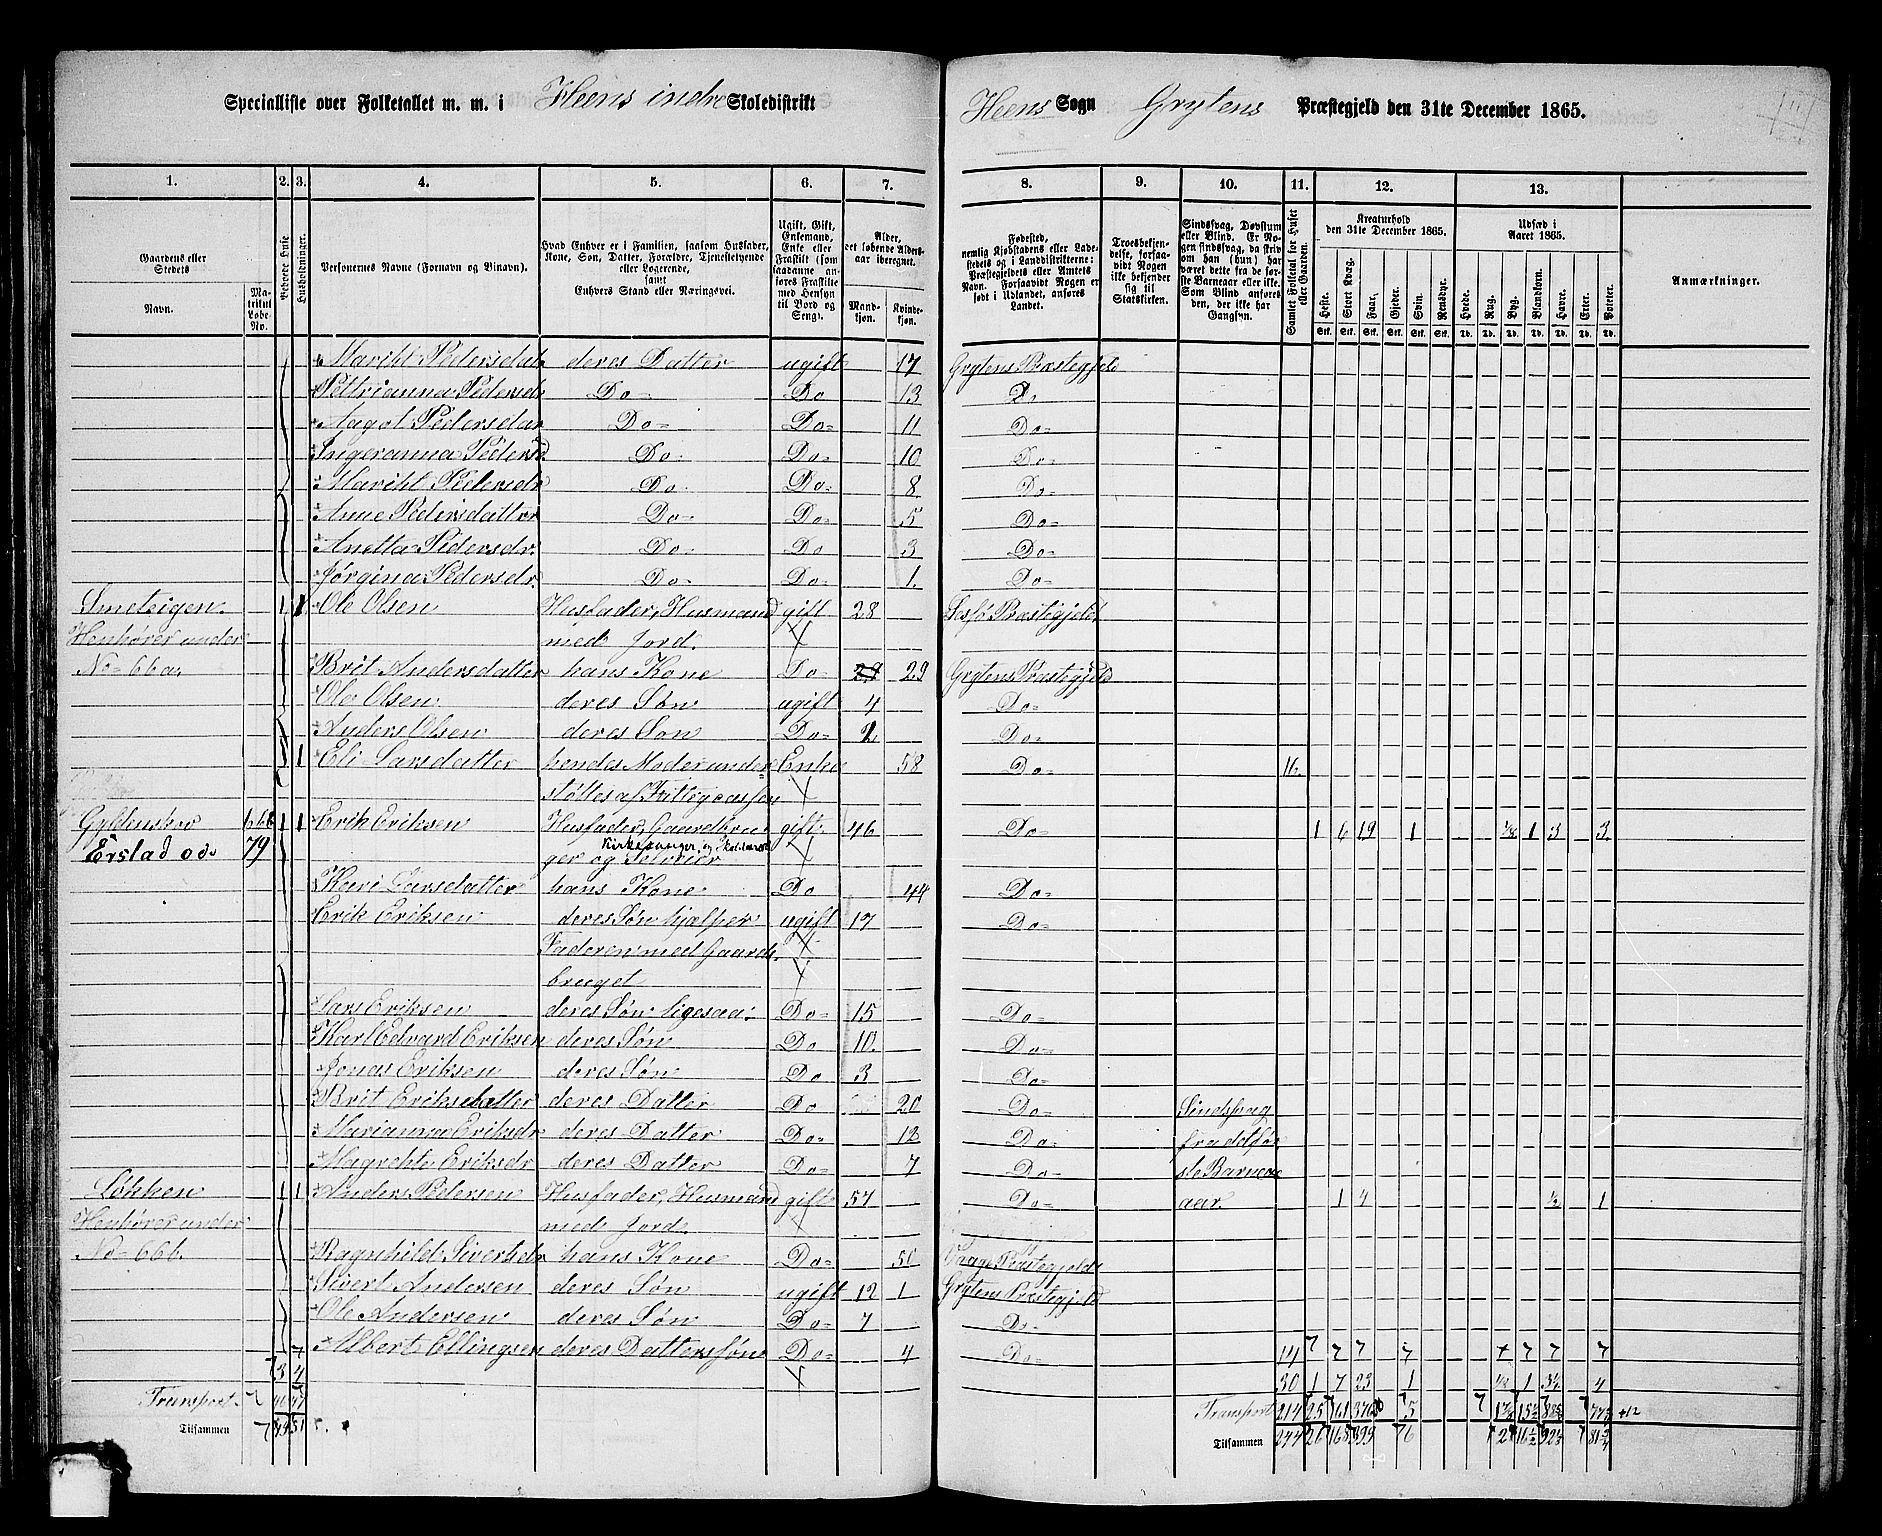 Specialliste over Folketallet m. m. i Heens indre Skoledistrikt
Heens Sogn Grytens Præstegjeld den 31te December 1865.
1. 2. 3. 4. 5. 6. 7. 8. 9. 10. 11. 12. 13.
Gaardens eller Stedets
Navn.
Matrikul Løbe-No.
Beboede Huse
Husholdninger.
Personernes Navne (Fornavn og Tilnavn).
Hvad Enhver er i Familien, saasom Husfader, Kone, Søn, Datter, Forældre, Tjenestetyende eller Logerende, samt Enhvers Stand eller Næringsvei.
Ugift, Gift, Enkemand, Enke eller Fraskilt (som saadanne anføres Fraskilte med Hensyn til Bord og Seng).
Alder, det løbende Aldersaar iberegnet.
Mandkjøn.
Kvindekjøn.
Fødested, nemlig Kjøbstadens eller Ladestedets og i Landdistrikterne: Præstegjeldets eller Amtets Navn. Forsaavidt Nogen er født i Udlandet, anføres Landet.
Troesbekjendelse, forsaavidt Nogen ikke bekjender sig til Statskirken.
Sindssvag, Døvstum eller Blind. Er Nogen sindssvag, da skrives om han (hun) har været dette fra de første Barneaar eller ikke. Som Blind anføres den, der ikke har Gangsyn.
Samlet Folketal for Huset eller Gaarden.
Kreaturhold den 31te December 1865.
Heste. Stort Kvæg. Faar. Gjeder. Svin. Rensdyr.
Udsæd i Aaret 1865.
Hvede. Rug. Byg. Blandkorn. Havre. Erter. Poteter.
Anmærkninger.
Marith Pedersdatr deres Datter ugift 17 Grytens Præstegjeld
Pettrianna Pedersdr Do Do 13 Do
Aagot Pedersdatr Do Do 11 Do
Ingeranna Pedersd Do Do 10 Do
Marith Pedersdr Do Do 8 Do
Anne Pedersdatter Do Do 5 Do
Anetta Pedersdr. Do Do 3 Do
Jørgina Pedersdr. Do Do 1. Do
Smeteigen. 1 1 Ole Olsen Husfader, Husmand gift 28 Præstegjeld
Henhører under med Jord.
No 66a. Brit Andersdatter hans Kone Do 29 Grytens Præstegjeld
Ole Olsen deres Søn ugift 4 Do
Anders Olsen deres Søn Do Do
1 Eli Larsdatter hendes Moder under Enke 58 Do 16.
støttes af Fattigcassen
Gyldenskov 66b 1 1 Erik Eriksen Husfader, Gaardbru gift. 46 Do 1 6 19 1 1/8 1 3 3
Erstad ode 79 Kirkesanger, og Skolelærer
ger og Selveier
Kari Larsdatter hans Kone Do 44 Do
Erik Eriksen deres Søn hjælper ugift 17 Do
Faderen med Gaards
bruget
Lars Eriksen deres Søn ligesaa Do 15 Do
Karl Edvard Eriksen deres Søn Do 10. Do
Jonas Eriksen deres Søn Do 3 Do
Brit Eriksdatter deres Datter Do 20 Do Sindssvag
Marianna Eriksdr deres Datter Do 12 Do fra de før
Magrehte Eriksdr deres Datter Do 7 Do ste Barne
Løkken 1 1 Anders Pedersen Husfader, Husmand gift 57 Do aar. 1 4 1/2 1
Henhører under med Jord.
No 66b. Ragnhild Sivertsdr hans Kone Do 50 Vaage Præstegjeld
Sivert Andersen deres Søn ugift 12 1 Grytens Præstegjeld
Ole Andersen deres Søn Do 7 Do
Albert Ellingsen deres Dattersøn Do 4 Do 14
3 4 30 1 7 23 1 1/8 1 3½ 4
Transport Transport 214 25 161 5
Tilsammen 49 51 Tilsammen 244 26